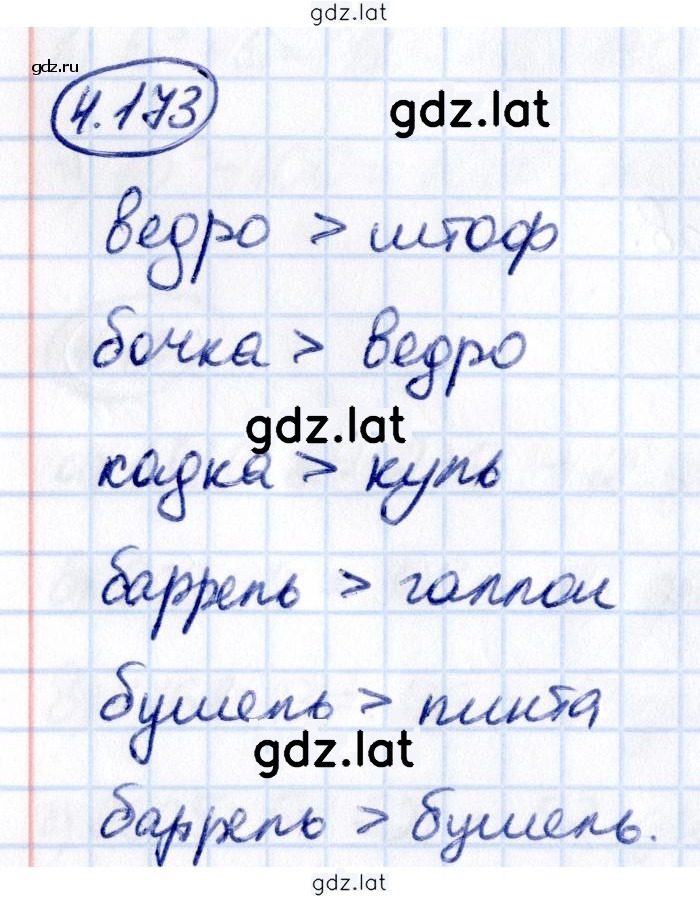 gdz.lat
gdz.ru
4.173
gdz.lat
ведро > штоф
бочка > ведро
gdz.lat
кадка > куль
баррель > галлон
бушель > пинта
gdz.lat
баррель > бушель.
gdz.lat